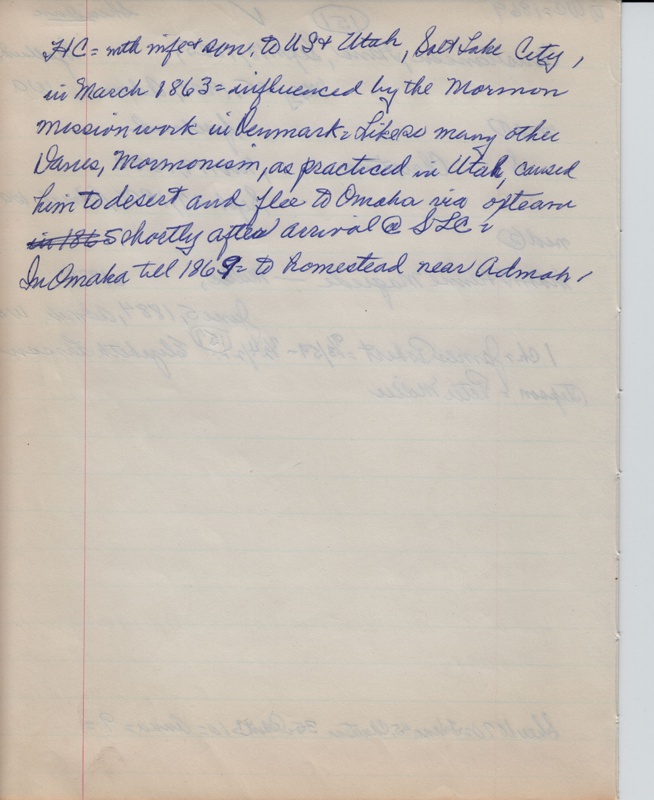 HC = with wife & son, to US & Utah, Salt Lake City,
in March 1863 = influenced by the Mormon
mission work in Denmark = Like so many other
Danes, Mormonism, as practiced in Utah, caused
him to desert and flee to Omaha via opteam
in 1865 shortly after arrival @ SLC =
In Omaha till 1869 = to homestead near Admah,